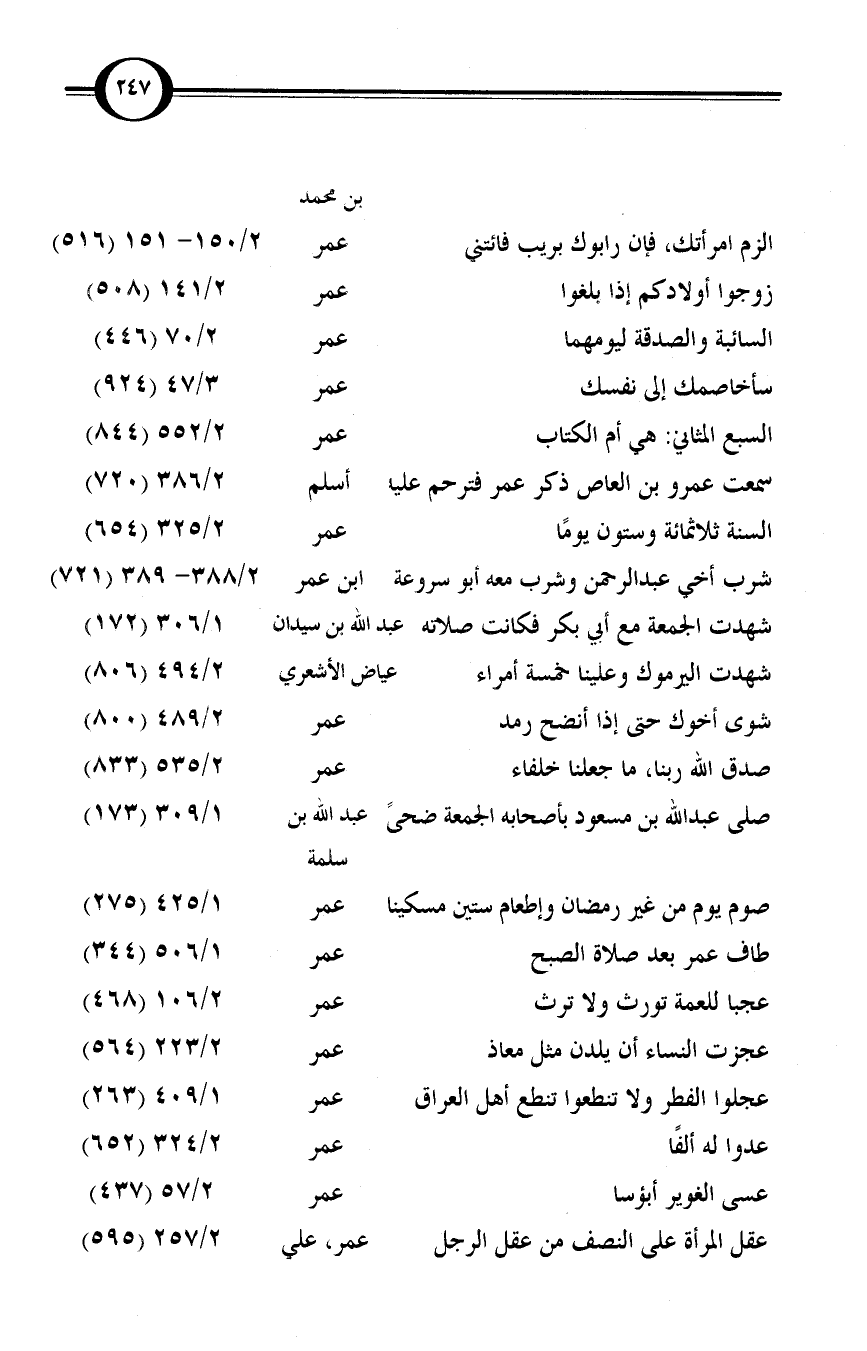 ٢٤٧
بن محمد
الزم امرأتك، فإن رابوك بريب فائتني عمر ١٥٠/٢- ١٥١ (٥١٦)
زوجوا أولادكم إذا بلغوا عمر ١٤١/٢ (٥٠٨)
السائبة والصدقة ليومهما عمر ٧٠/٢ (٤٤٦)
سأخاصمك إلى نفسك عمر ٤٧/٣ (٩٢٤)
السبع المثاني: هي أم الكتاب عمر ٥٥٢/٢ (٨٤٤)
سمعت عمرو بن العاص ذكر عمر فترحم عليه أسلم ٣٨٦/٢ (٧٢٠)
السنة ثلاثمائة وستون يومًا عمر ٣٢٥/٢ (٦٥٤)
شرب أخي عبدالرحمن وشرب معه أبو سروعة ابن عمر ٣٨٨/٢- ٣٨٩ (٧٢١)
شهدت الجمعة مع أبي بكر فكانت صلاته عبد الله بن سيدان ٣٠٦/١ (١٧٢)
شهدت اليرموك وعلينا خمسة أمراء عياض الأشعري ٤٩٤/٢ (٨٠٦)
شوى أخوك حتى إذا أنضج رمد عمر ٤٨٩/٢ (٨٠٠)
صدق الله ربنا، ما جعلنا خلفاء عمر ٥٣٥/٢ (٨٣٣)
صلى عبدالله بن مسعود بأصحابه الجمعة ضحىً عبد الله بن ٣٠٩/١ (١٧٣)
سلمة
صوم يوم من غير رمضان وإطعام ستين مسكينا عمر ٤٢٥/١ (٢٧٥)
طاف عمر بعد صلاة الصبح عمر ٥٠٦/١ (٣٤٤)
عجبا للعمة تورث ولا ترث عمر ١٠٦/٢ (٤٦٨)
عجزت النساء أن يلدن مثل معاذ عمر ٢٢٣/٢ (٥٦٤)
عجلوا الفطر ولا تنطعوا تنطع أهل العراق عمر ٤٠٩/١ (٢٦٣)
عدوا له ألفًا عمر ٣٢٤/٢ (٦٥٢)
عسى الغوير أبؤسا عمر ٥٧/٢ (٤٣٧)
عقل المرأة على النصف من عقل الرجل عمر، علي ٢٥٧/٢ (٥٩٥)